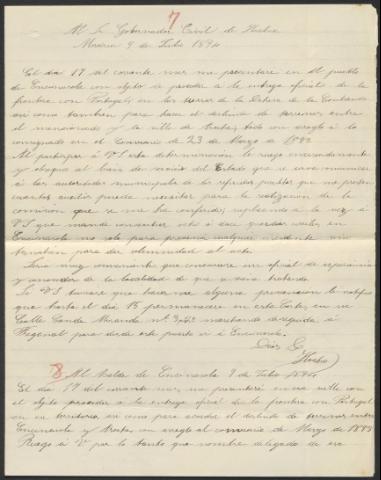 7
Al Sr Gobernador Civil de Huelva
Madrid 9 de Julio 1894
El dia 17 del corriente mes me presentare en el pueblo
de Encinasola con objeto de proceder a la entrega oficial de la
frontera con Portugal, en los terrenos de la Dehesa de la Contienda
asi como tambien para hacer el deslinde de terrenos entre
el mencionado y la villa de Aroche, todo con arreglo á lo
consignado en el Convenio de 23 de Marzo de 1893
Al participar á VS esta determinación le ruego encarecidamente
y obsequio al buen servicio del Estado que se sirva comunicar
á las autoridades municipales de los referidos pueblos que me presten
cuantos auxilios pueda necesitar para la realizacion de la
comision que se me ha conferido, suplicando á la vez á
VS que mande concentrar ocho ó diez guardias civiles en
Encinasola no solo para prevenir cualquier incidente sino
tambien para dar solemnidad al acto.
Seria muy conveniente que concurriese un oficial de
y conocedor de la localidad de que se viene tratando
Si VS tuviese que hacerme alguna prevencion le notifico
que hasta el dia 15 permanecere en esta Corte, en su
Calle Conde Miranda nº marchando despues á
Fregenal para desde este punto ir á Encinasola.
Dios G.
8 Al Alcalde de Encinasola 9 de Julio 1894
El dia 17 del corriente mes, me presentaré en esa villa con
el objeto proceder á la entrega oficial de la frontera con Portugal
en su territorio asi como para acordar el deslinde de terrenos entre
Encinasola y Aroche, con arreglo al convenio de Marzo de 1893
Ruego á V por lo tanto que nombre delegado de esa